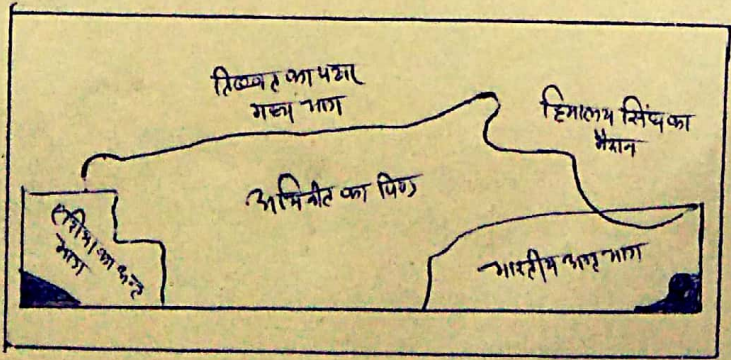 तिब्बत का पठार
मध्य भाग
हिमालय सिंध का
मैदान
का पिण्ड
एशिया का अग्र
भाग
भारतीय अग्र भाग